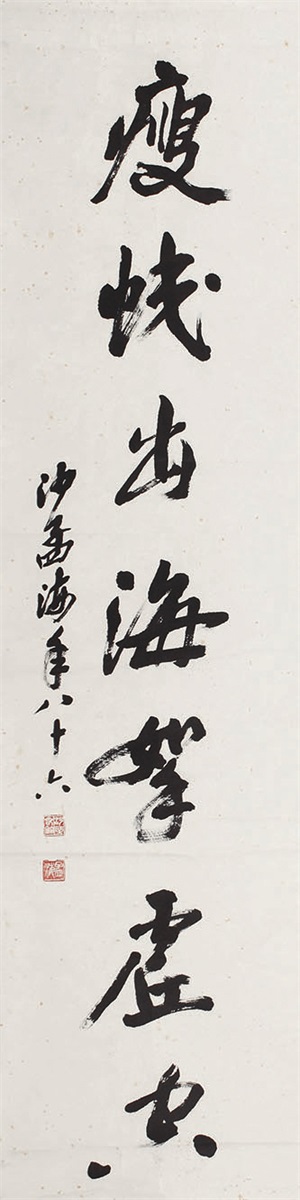 瘦蛟出海挐虚空
沙孟海年八十六